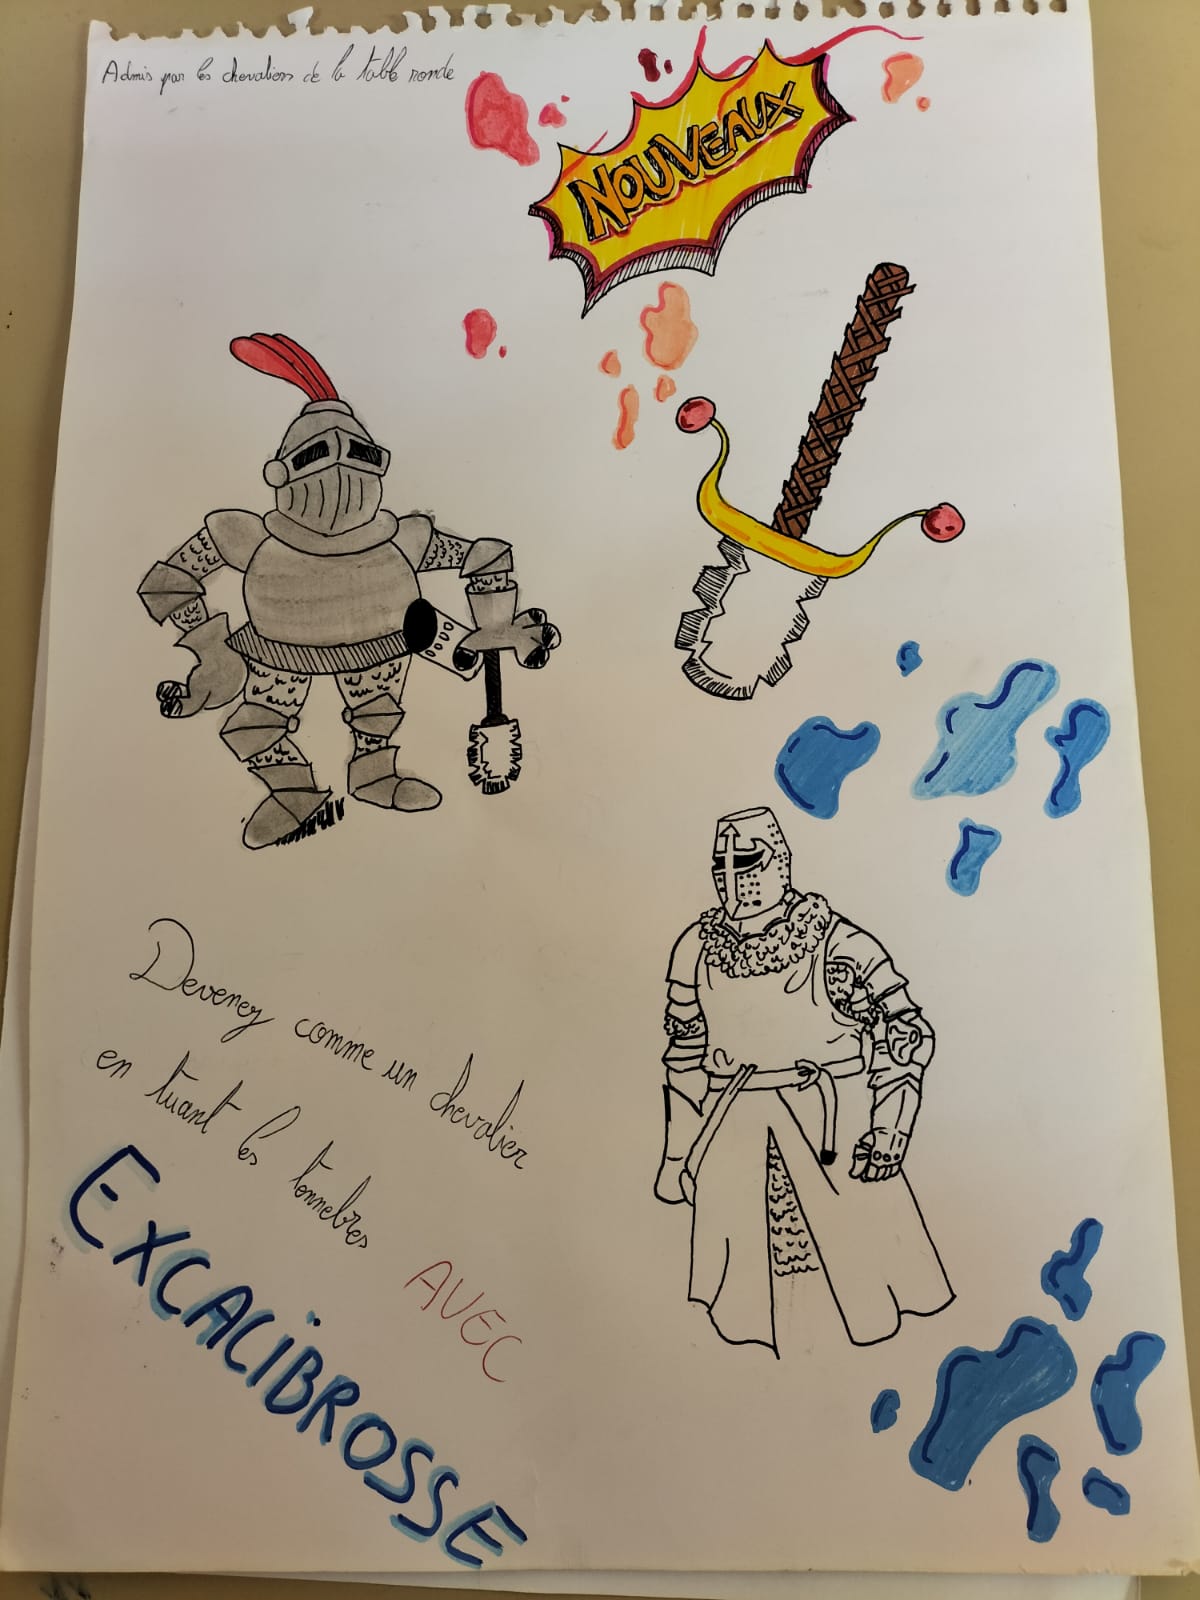 Admis par les chevaliers de la table ronde
NOUVEAUX
Devenez comme un chevalier
en tuant les tennebres
AVEC
EXCALIBROSSE